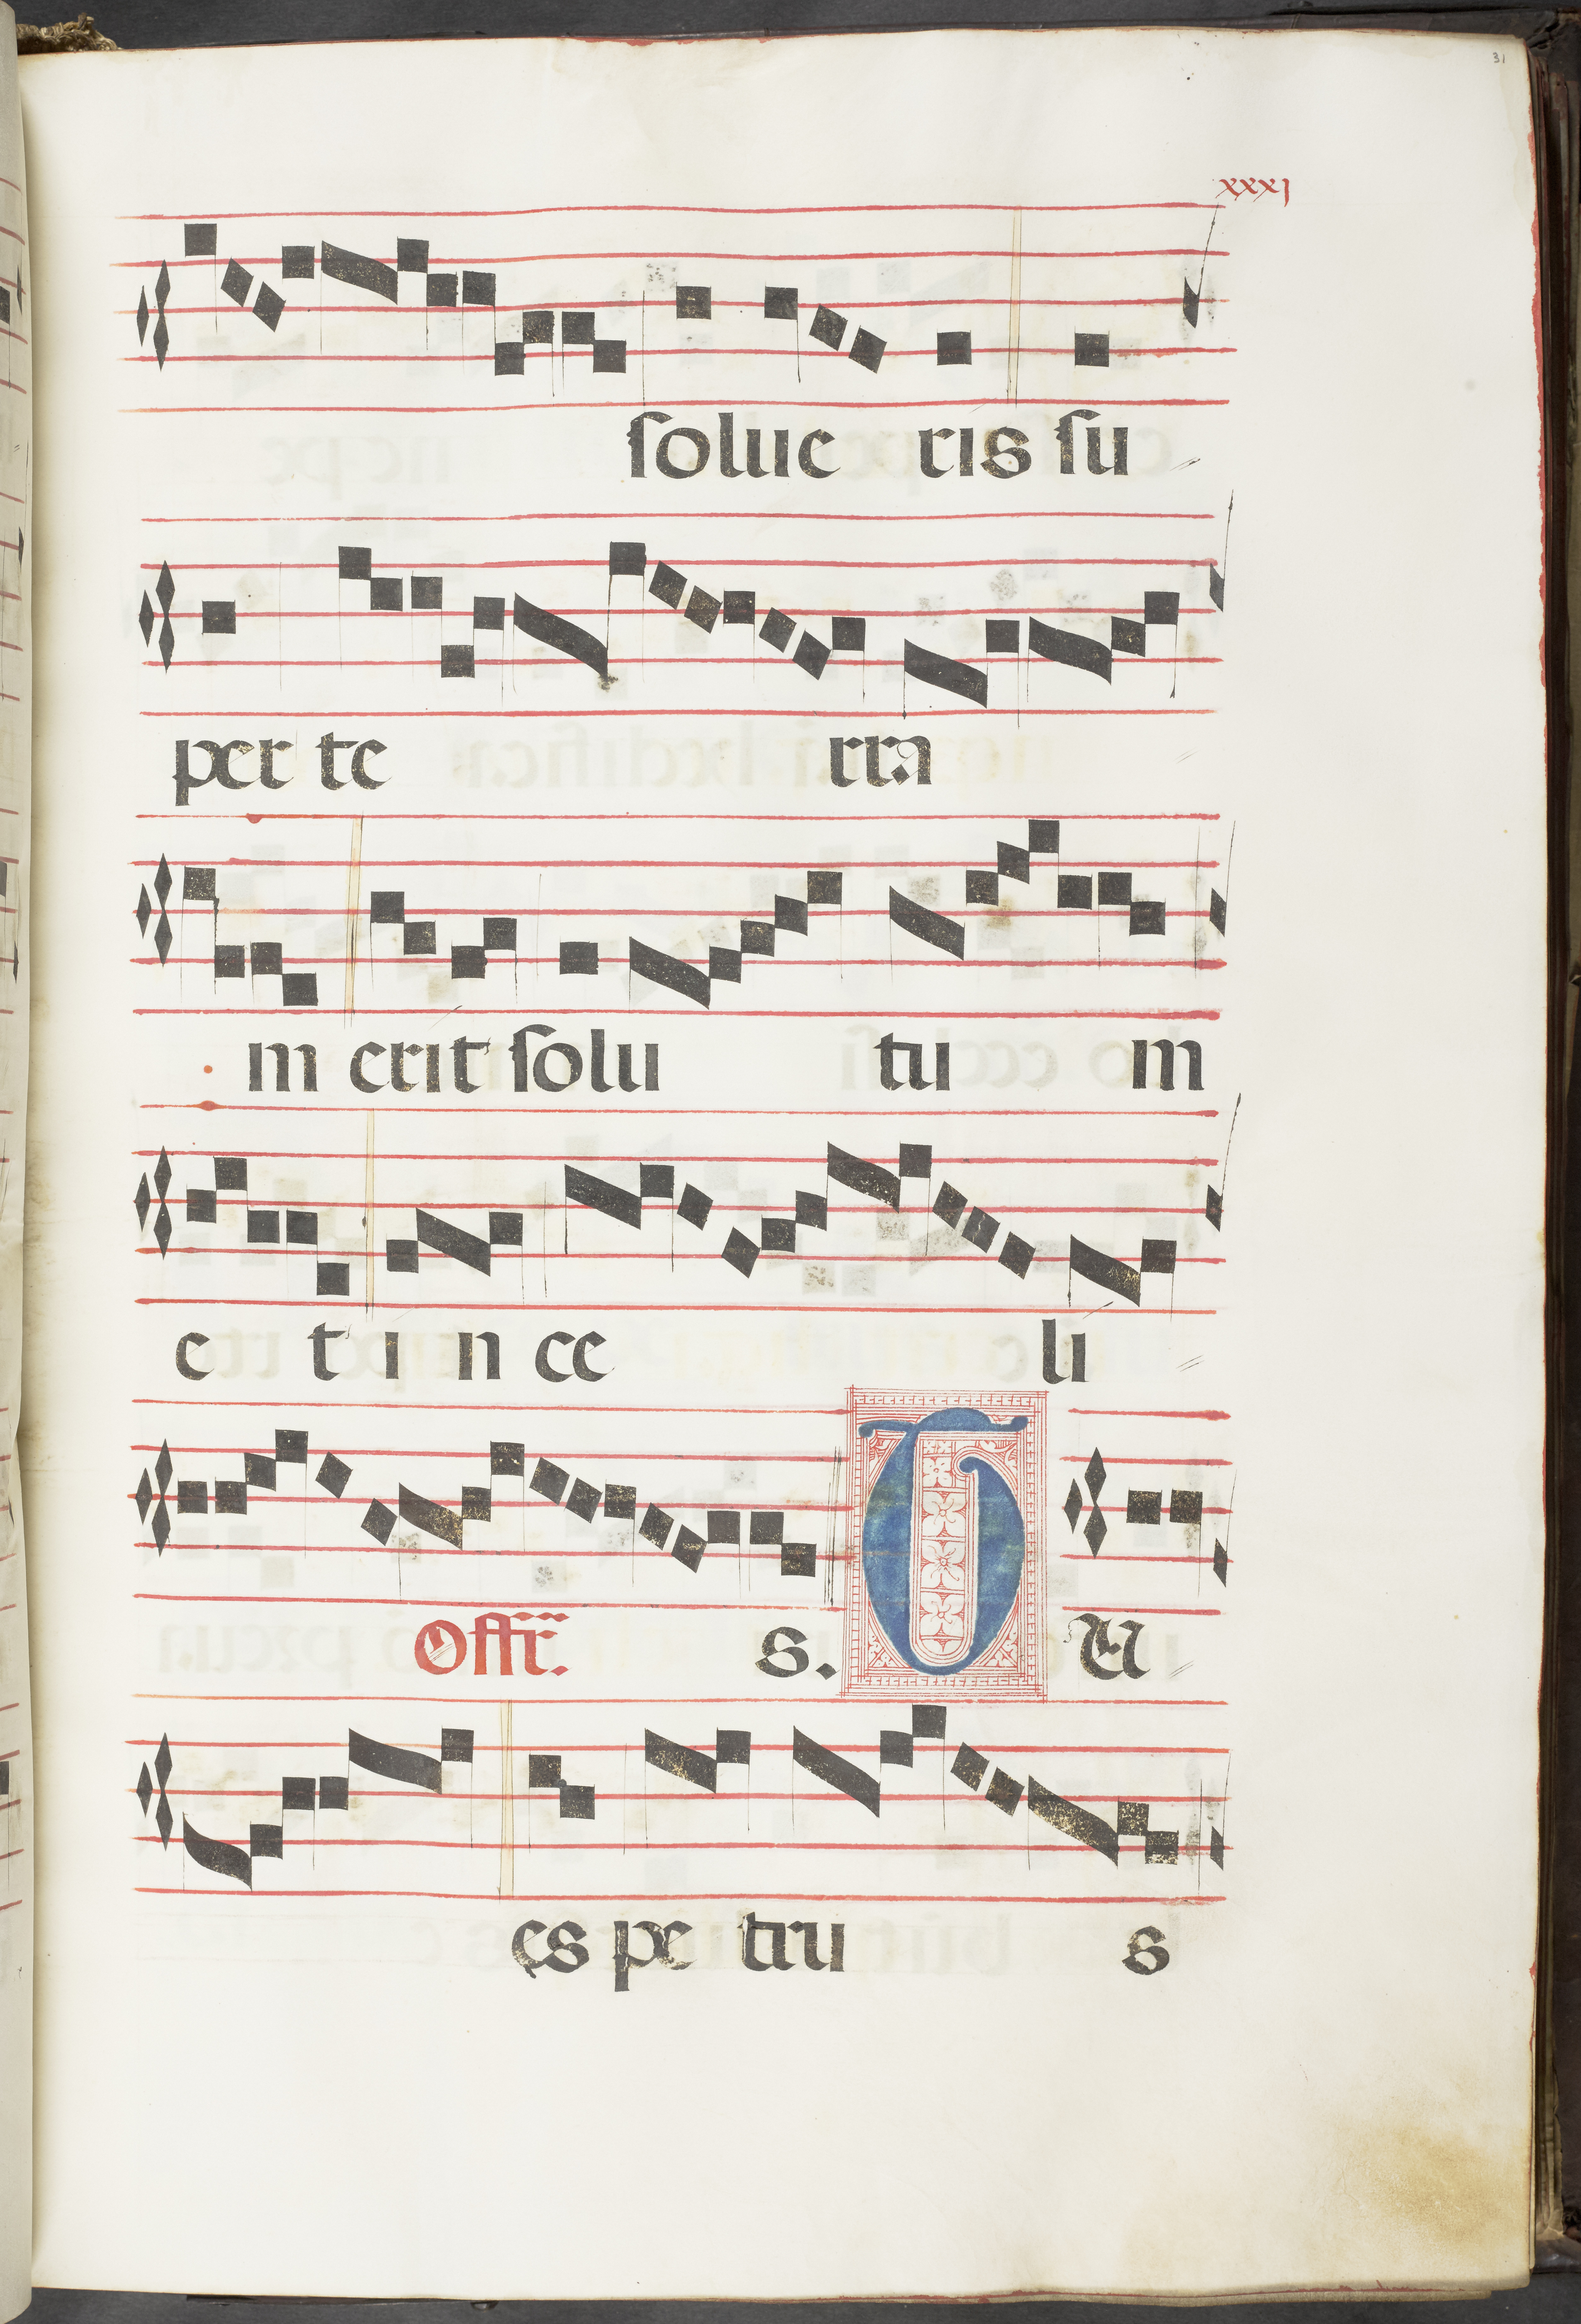 31
xxxj
solue ris su
per te rra
m erit solu tu m
e t i n ce li
Offr. s. T U
es pe tru s